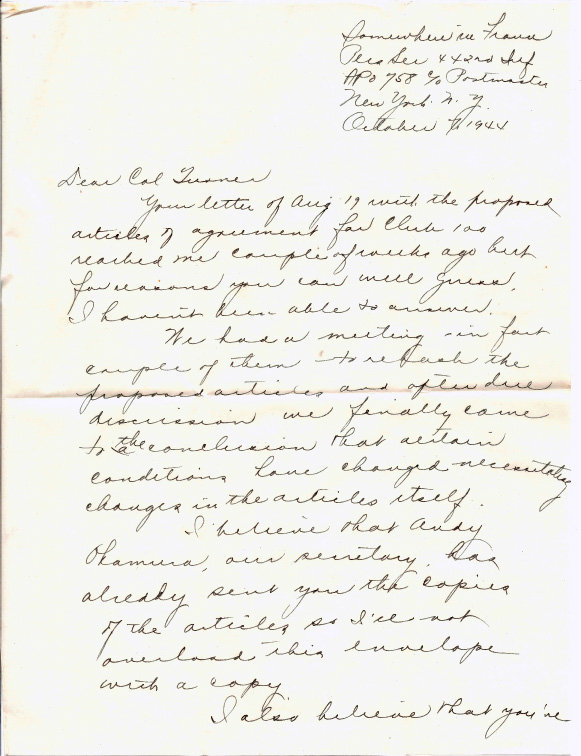 Somewhere in France
Pers Sec 442nd Inf
APO 758 c/o Postmaster
New York. N. Y.
October 7, 1944
Dear Col Turner
Your letter of Aug 19 with the proposed
articles of agreement for Club 100
reached me couple of weeks ago but
for reasons you can well guess,
I haven't been able to answer.
We had a meeting in fact
couple of them to rehash the
proposed articles and after due
discussion we finally came
to the conclusion that certain
conditions have changed necessitating
changes in the articles itself.
I believe that Andy
Okamura, our secretary, has
already sent you the copies
of the articles so I'll not
overload this envelope
with a copy
I also believe that you've